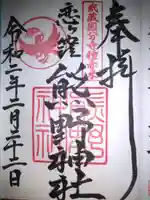 奉拝
武蔵国分寺鎮守
恋ヶ窪
熊野神社
令和二年二月二十二日